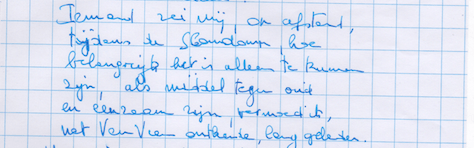 Iemand zei mij, op afstand,
tijdens de lockdown hoe
belangrijk het is alleen te kunnen
zijn, als middel tegen oud
en eenzaam zijn, vermoed ik,
wat Van Veen ontkende, lang geleden.